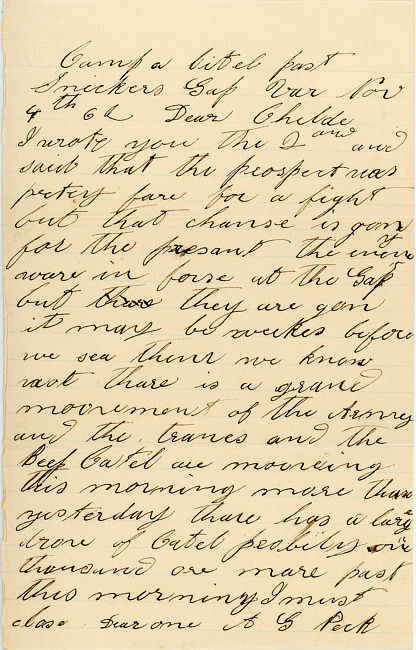 Camp a litel past
Snickers Gap Var Nov
4th 62 Dear Childe
I wrote you the 2and and
said that the prospert was
pretty fare for a fight
but that chanse is gon
for the presant the enemy
ware in forse at the Gap
but they are gon
it may be weekes before
we sea them we know
not thare is a grand
moovement of the Army
and the tranes and the
Beef Catel are mooveing
this morning more than
yesterday thare has a large
drove of Catel posbily one
thousand ore more past
this morning I must
close Dear one A G Peck